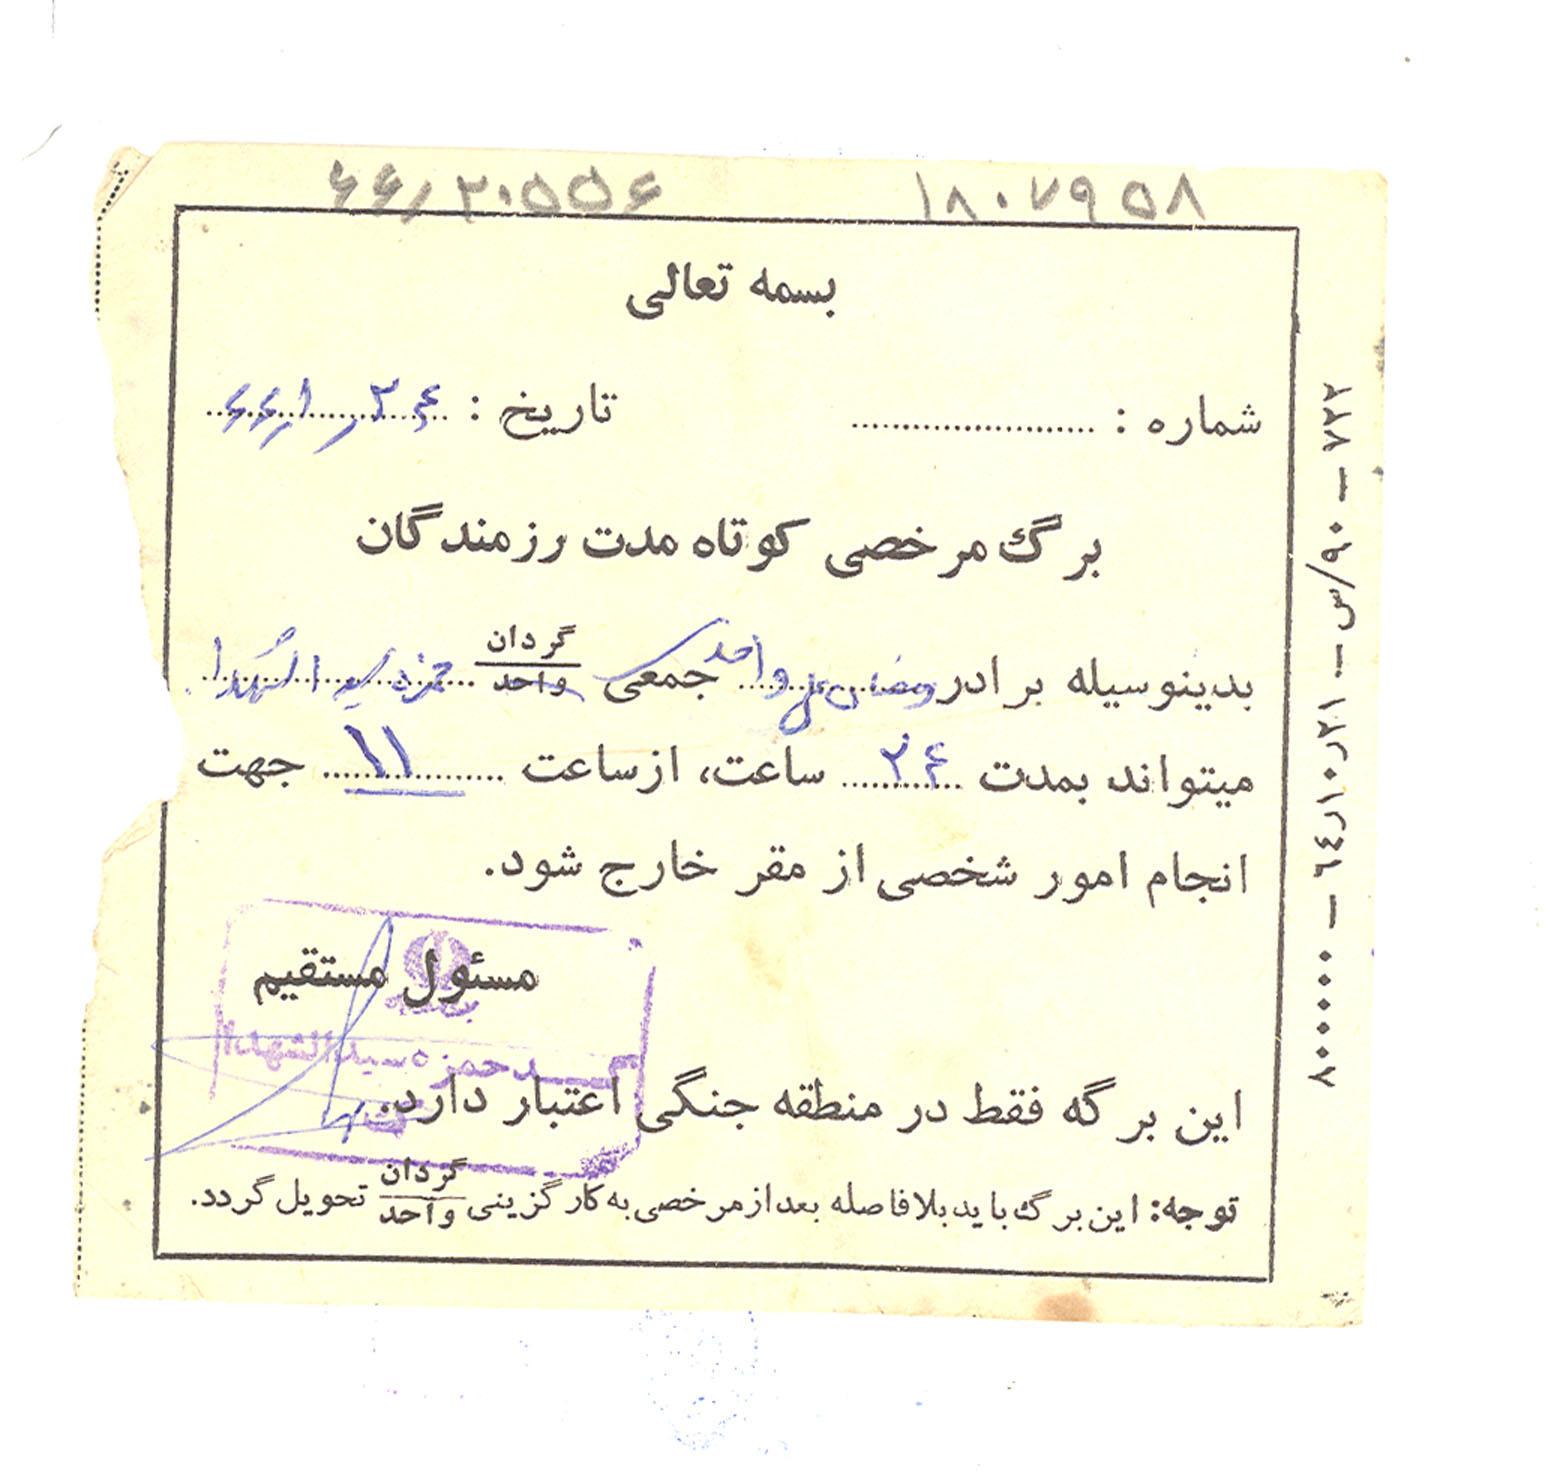 ۱۸۰۷۹۵۸ ۶۶/۲۰۵۵۶
بسمه تعالی
شماره : ........ تاریخ : ۲۴/۱/۶۶
برگ مرخصی کوتاه مدت رزمندگان
بدینوسیله برادر رمضان علی واحد جمعی گردان/واحد حمزه سید الشهدا
میتواند بمدت ۲۴ ساعت، از ساعت ۱۱ جهت
انجام امور شخصی از مقر خارج شود.
مسئول مستقیم
حمزه سیدالشهداء
این برگه فقط در منطقه جنگی اعتبار دارد.
توجه: این برگ باید بلافاصله بعد از مرخصی به کارگزینی گردان/واحد تحویل گردد.
۷۲۲ – ۹۰/س – ۲۱ر۱۰ر٦٤ – ۸۰۰۰۰۰